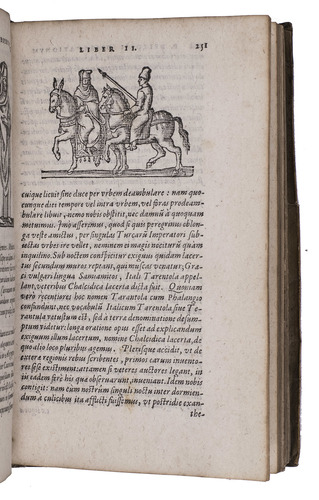 LIBER II. 231
cuique licuit sine duce per vrbem deambulare: nam quo-
cunque diei tempore vel intra vrbem, vel foras prodeam-
bulare libuit, nemo nobis obstitit, nec damnũ à quoquam
metuimus. Imò asserimus, quod si quis peregrinus oblon-
ga veste amictus, per singulas Turcarũ Imperatori sub-
iectas vrbes ire vellet, neminem ei magis nociturũ quàm
inquilino. Sub noctem conspicitur exiguus quidam lacer-
tus secundum muros reptans, qui muscas venatur, Græ-
ci vulgari lingua Samiamitos, Itali Tarentola appel-
lant, veteribus Chalcidica lacerta dicta fuit. Quoniam
verò recentiores hoc nomen Tarantola cum Phalangio
confundunt, nec vocabulũ Italicum Tarentola siue Te-
rantula vetustum est, sed à terra denominatione desum-
ptum videtur: longa oratione opus esset ad explicandum
exiguum illum lacertum, nomine Chalcidica lacerta, de
quo alio loco pluribus agemus. Plerisque accidit, vt de
exteræ regionis rebus scribentes, primos earum inuento-
res se se existiment: attamen si veteres auctores legant, in
in eadem ferè his quæ obseruarunt, inueniant. Idem nobis
contigit: nam cum nostrûm singuli noctu inter dormien-
dum à culicibus ita afflicti fuissemus, vt postridie exan-
the-